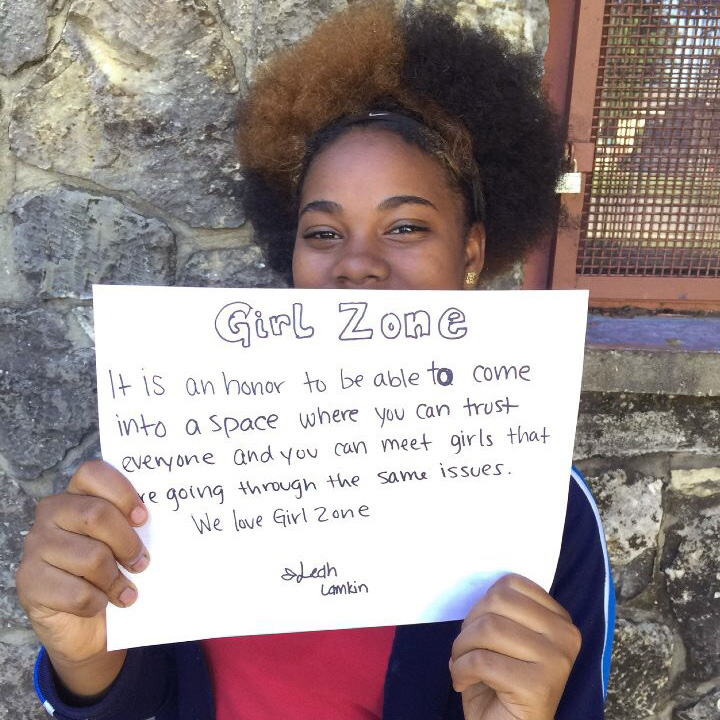 Girl Zone
It is an honor to be able to come
into a space where you can trust
everyone and you can meet girls that
re going through the same issues.
We love Girl Zone
Leah
Lamkin